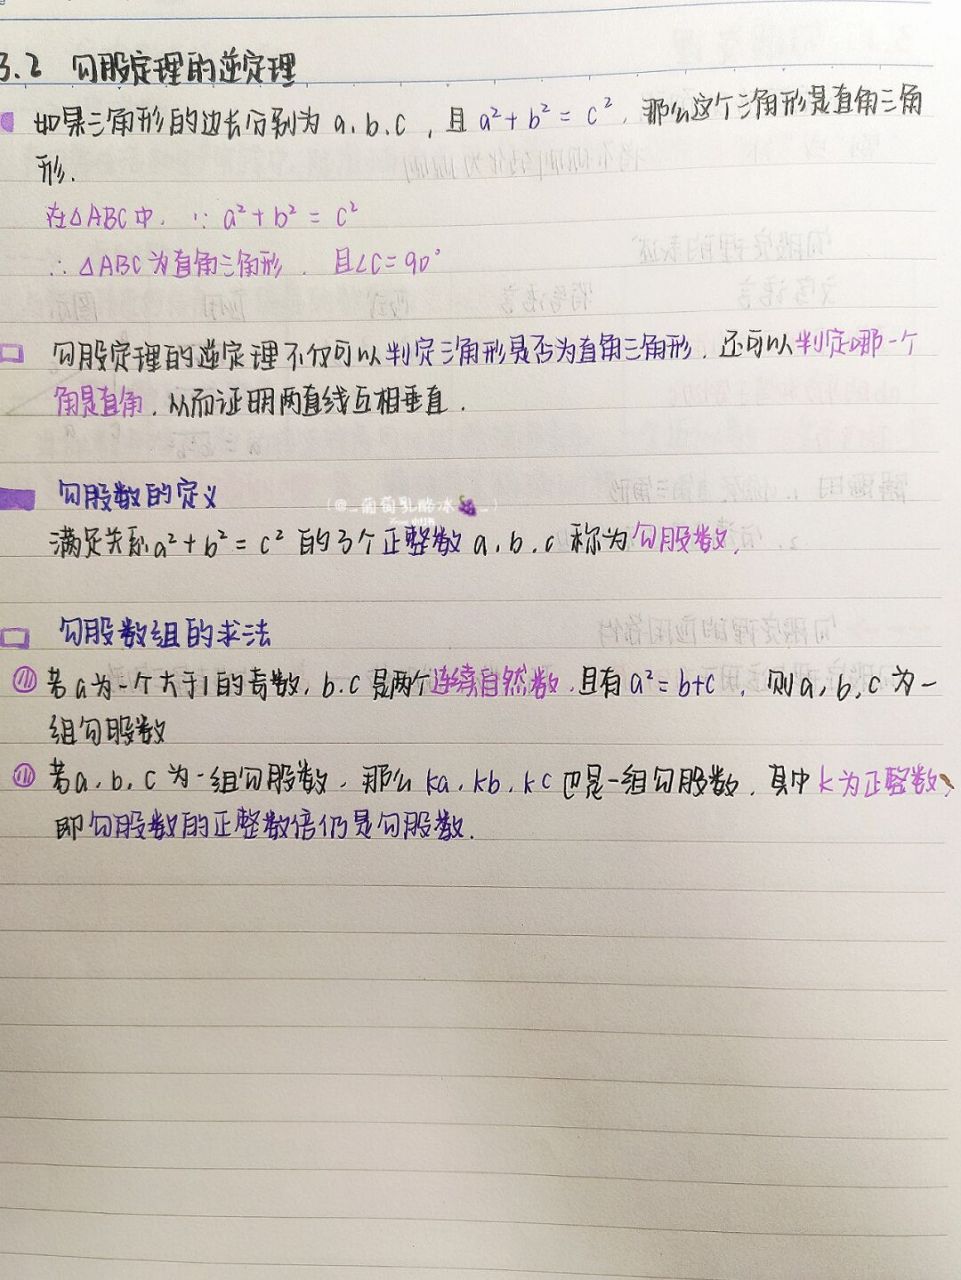 3.2 勾股定理的逆定理
如果三角形的边长分别为 a.b.c , 且 a²+b² = c² , 那么这个三角形是直角三角
形.
在△ABC中, ∵ a²+b² = c²
∴ △ABC为直角三角形 . 且∠C=90°
勾股定理的逆定理不仅可以判定三角形是否为直角三角形, 还可以判定哪一个
角是直角, 从而证明两直线互相垂直.
勾股数的定义
(@_葡萄乳酪冰_)
满足关系a²+b² = c² 的3个正整数 a.b.c 称为勾股数,
勾股数组的求法
若a为一个大于1的奇数, b.c 是两个连续自然数, 且有 a²=b+c , 则a, b, c 为一
组勾股数
若a, b, c 为一组勾股数, 那么 ka, kb, kc 也是一组勾股数, 其中 k为正整数,
即勾股数的正整数倍仍是勾股数.